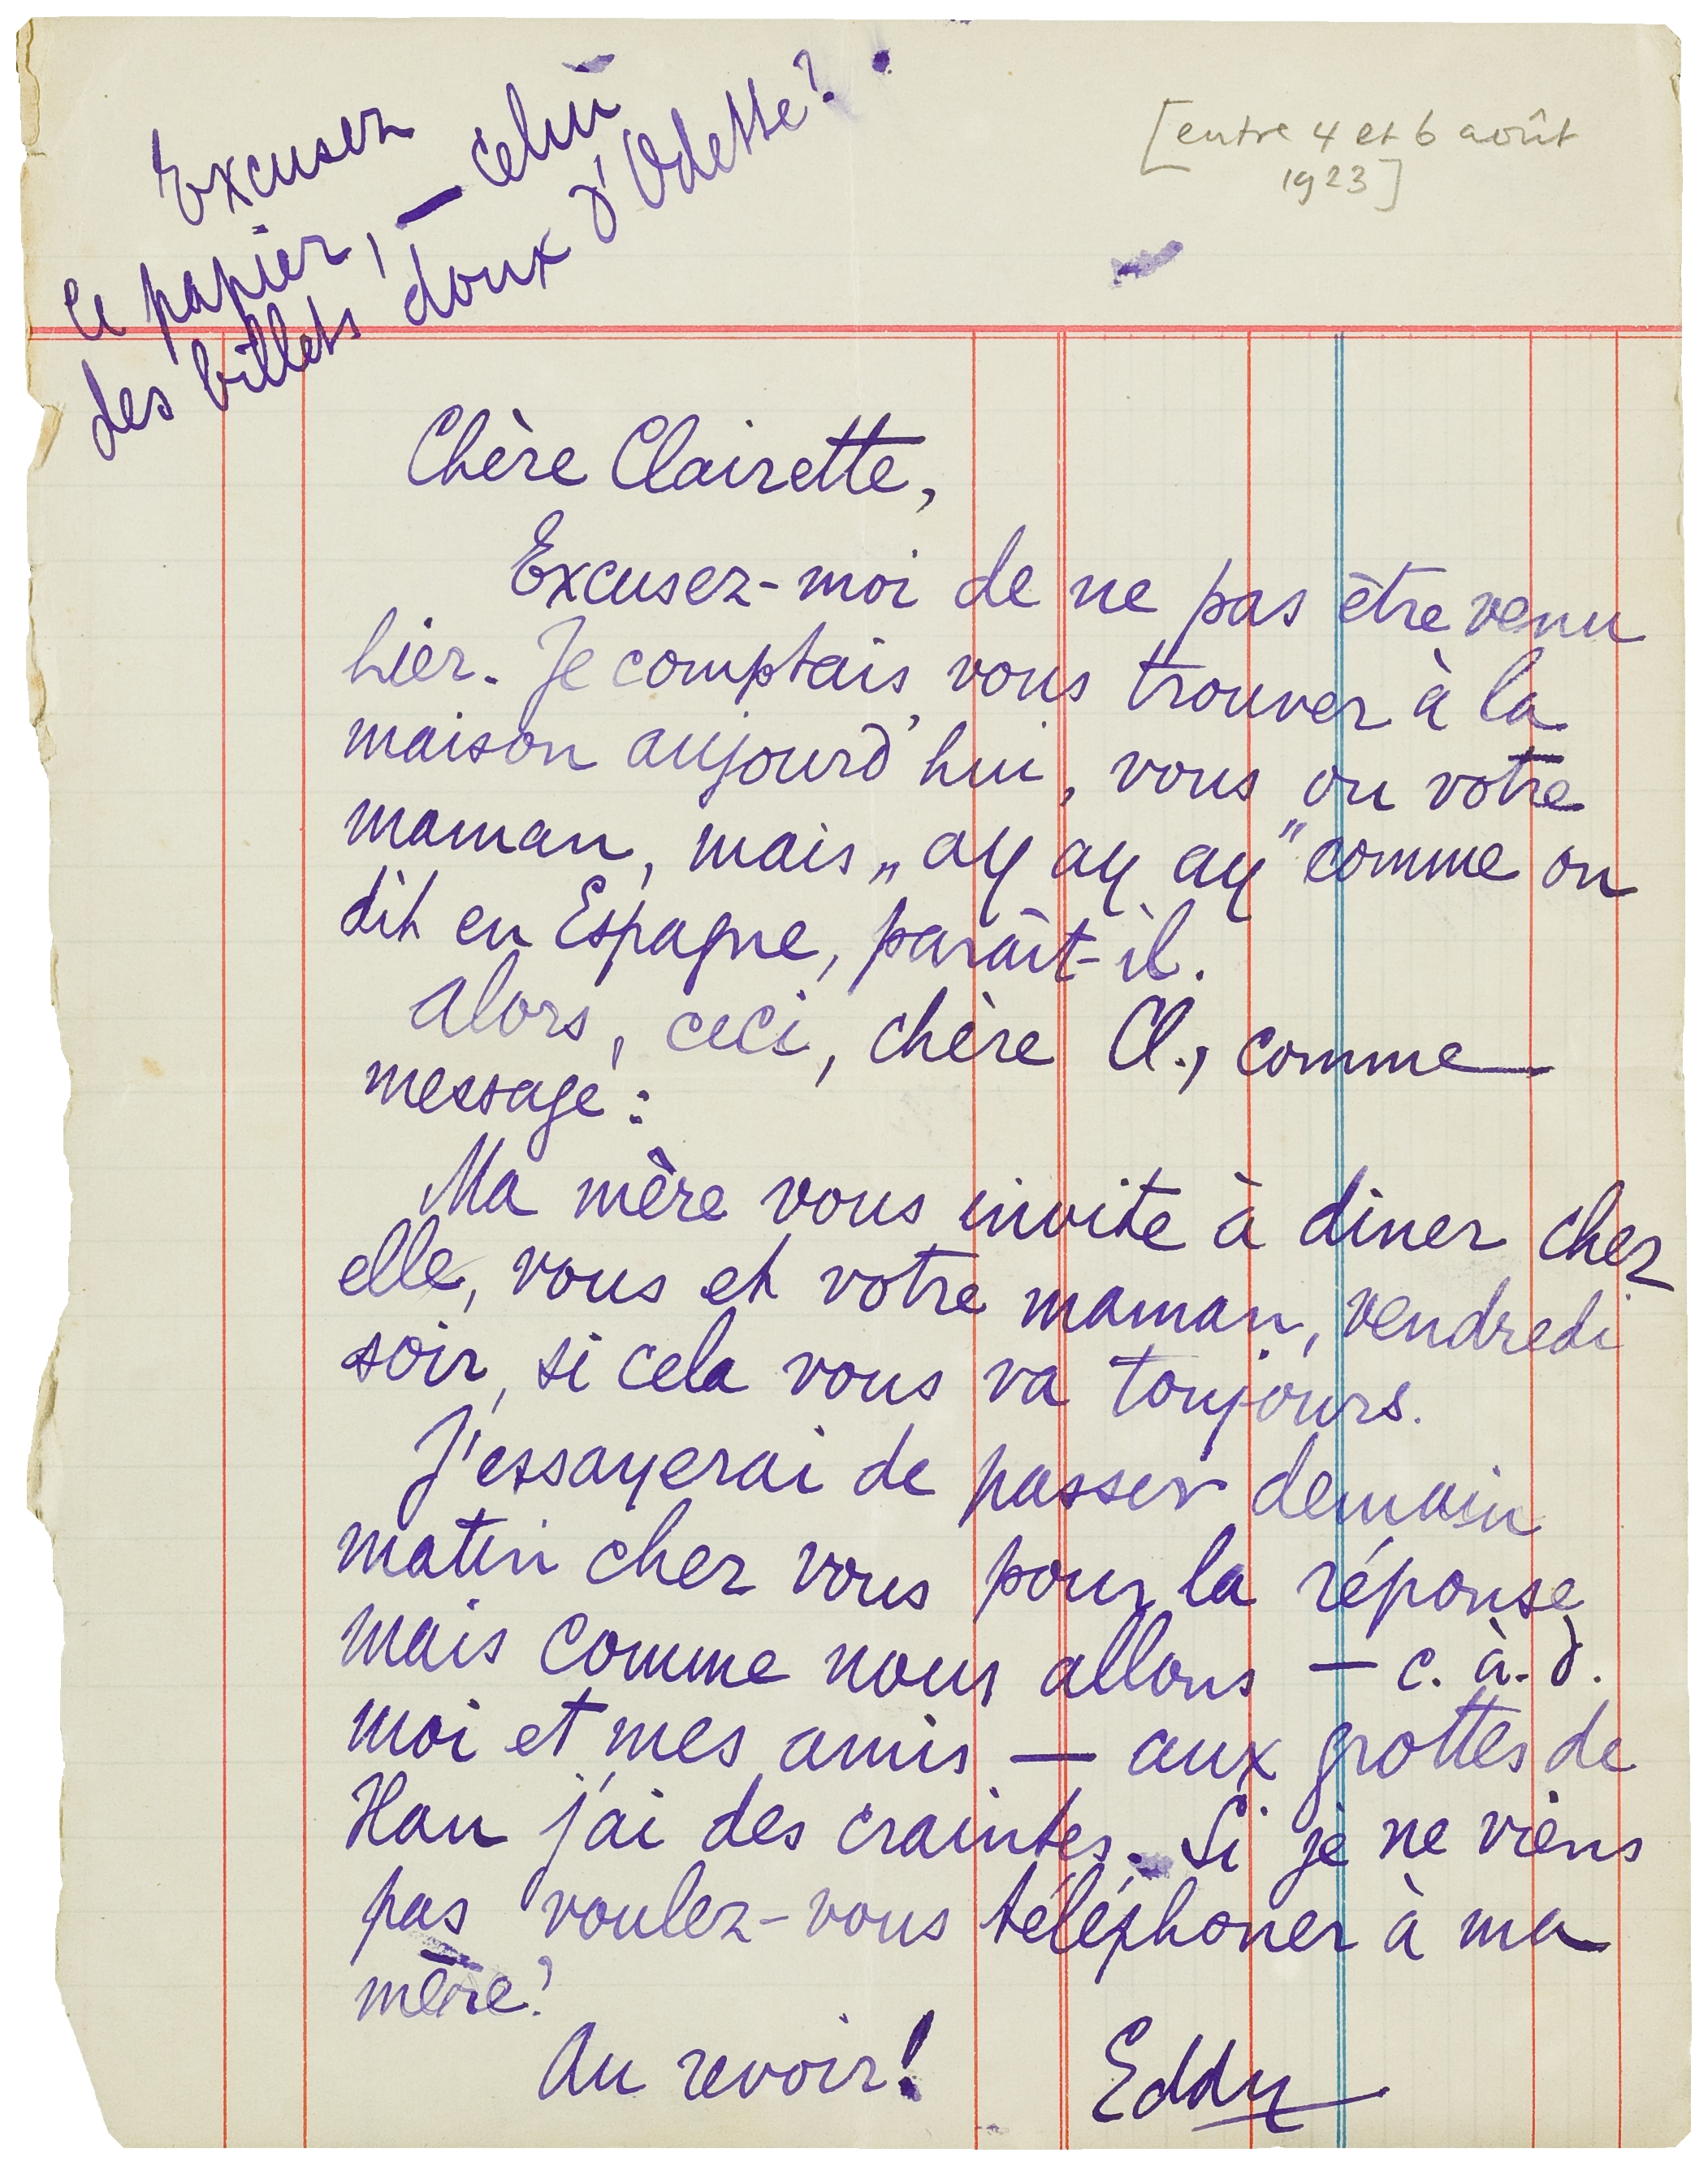 Excusez
ce papier, — celui
des billets doux d'Odette?
[entre 4 et 6 août
1923]
Chère Clairette,
Excusez-moi de ne pas être venu
hier. Je comptais vous trouver à la
maison aujourd'hui, vous ou votre
maman, mais „ay ay ay” comme on
dit en Espagne, paraît-il.
Alors, ceci, chère Cl., comme
message:
Ma mère vous invite à diner chez
elle, vous et votre maman, vendredi
soir, si cela vous va toujours.
J'essayerai de passer demain
matin chez vous pour la réponse
mais comme nous allons — c. à. d.
moi et mes amis — aux grottes de
Han j'ai des craintes. Si je ne viens
pas voulez-vous téléphoner à ma
mère?
Au revoir! Eddy